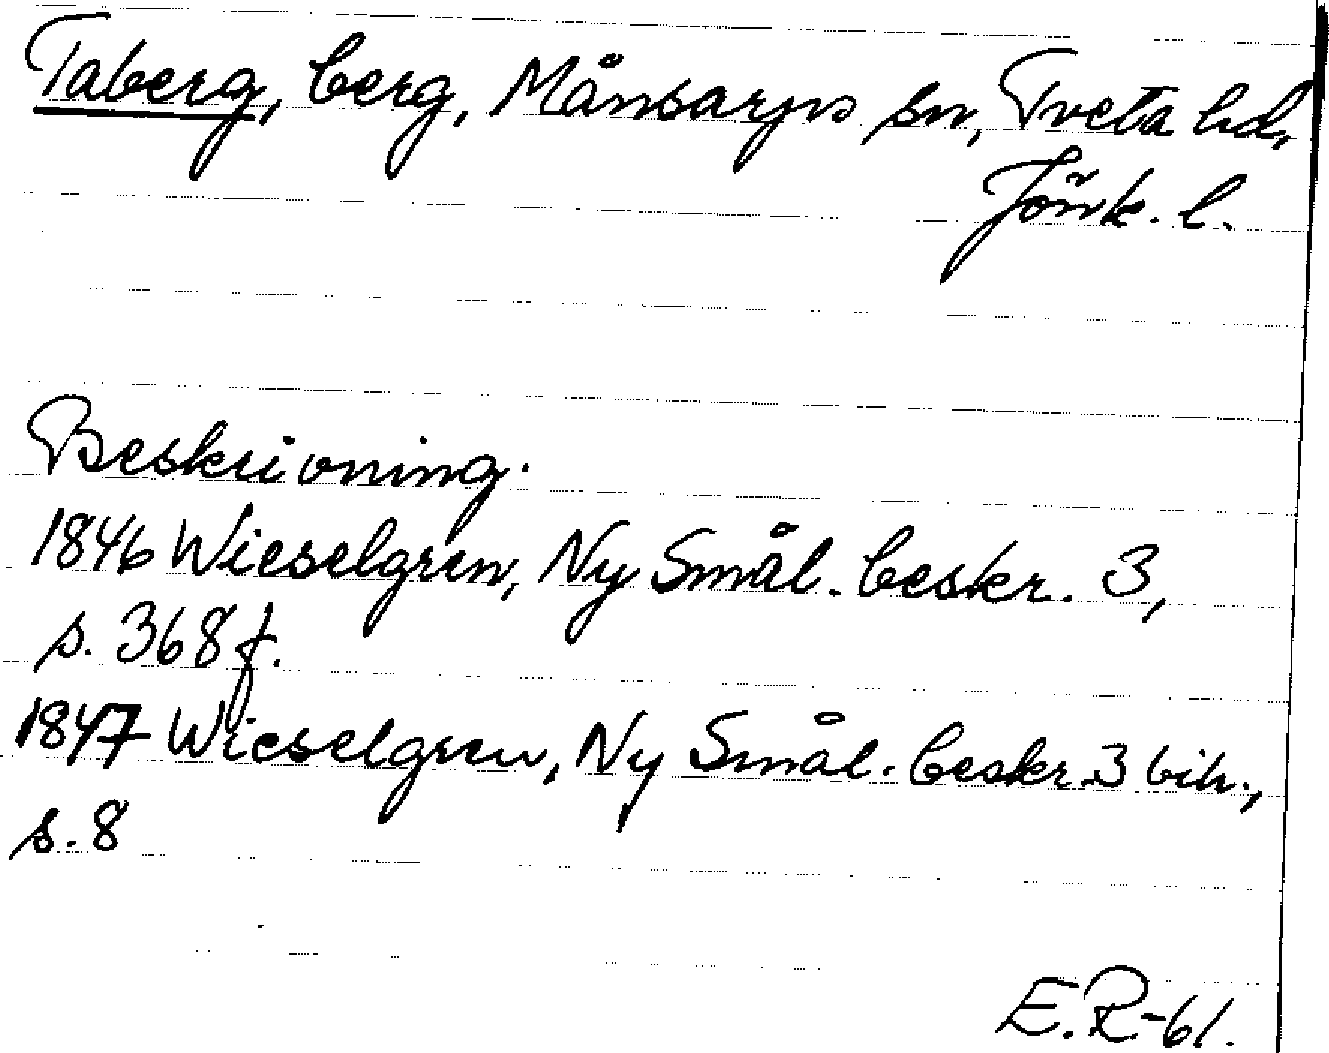 Taberg, berg, Månsarps sn, Tveta hd,
Jönk. l.
Beskrivning.
1846 Wieselgren, Ny Smål. beskr. 3,
s. 368 f.
1847 Wieselgren, Ny Smål. beskr. 3 bih.,
s. 8
E.R-61.